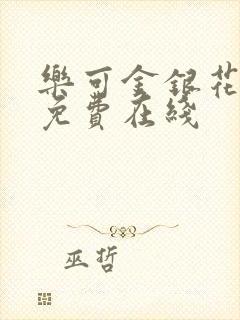 樂可金銀花
免費在綫
巫哲